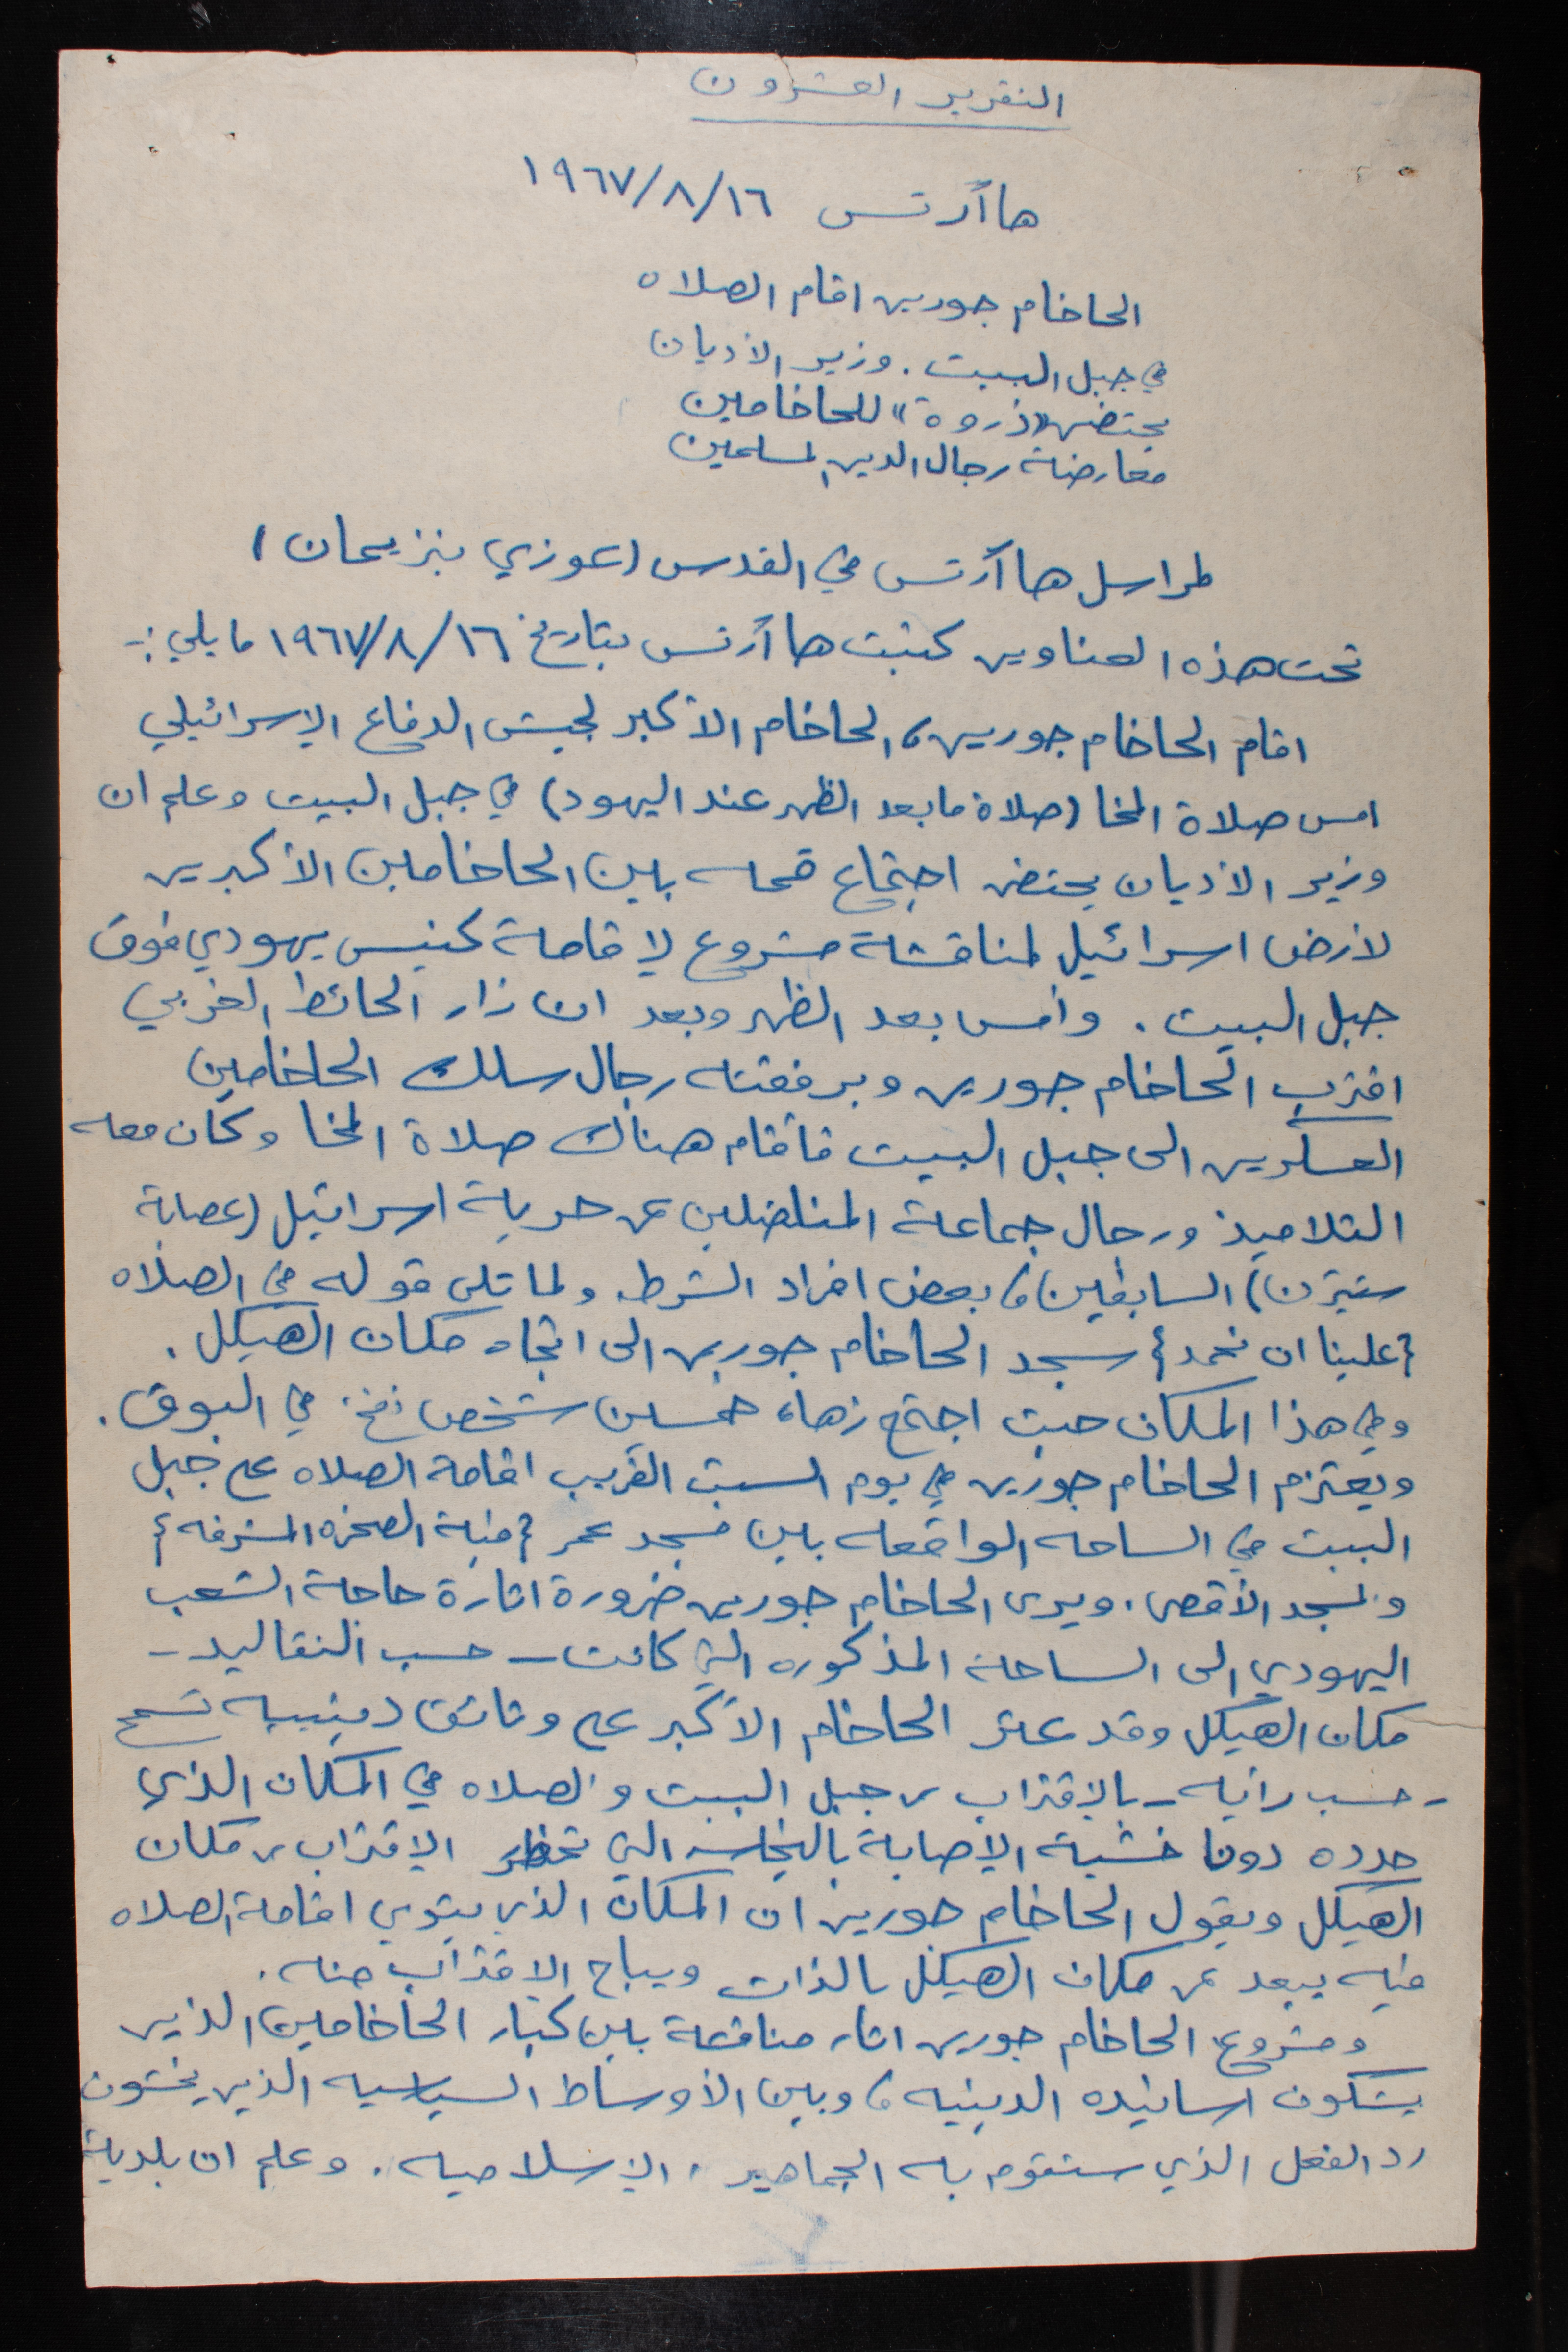 التقرير العشرون
هاآرتس ١٩٦٧/٨/١٦
الحاخام جورين اقام الصلاه
في جبل البيت . وزير الأديان
يحتضن «ذروة» للحاخامين
معارضة رجال الدين المسلمين
لمراسل هاآرتس في القدس (عوزي بنزيمان)
تحت هذه العناوين كتبت هاآرتس بتاريخ ١٩٦٧/٨/١٦ ما يلي :-
اقام الحاخام جورين، الحاخام الأكبر لجيش الدفاع الإسرائيلي
امس صلاة المنحا (صلاة ما بعد الظهر عند اليهود) في جبل البيت وعلم ان
وزير الأديان يحتضن اجتماع قمه بين الحاخامين الأكبرين
لأرض اسرائيل لمناقشة مشروع لإقامة كنيس يهودي فوق
جبل البيت . وأمس بعد الظهر وبعد ان زار الحائط الغربي
اقترب الحاخام جورين وبرفقته رجال سلك الحاخامين
العسكرين الى جبل البيت فأقام هناك صلاة المنحا وكان معه
التلاميذ ورجال جماعة المناضلين عن حرية اسرائيل (عصابة
شتيرن) السابقين، بعض افراد الشرطه ولما تلى قوله في الصلاه
{علينا ان نحمد} سجد الحاخام جورين الى اتجاه مكان الهيكل .
وفي هذا المكان حيث اجتمع زهاء خمسين شخص نفخ في البوق .
ويعتزم الحاخام جورين في يوم السبت القريب اقامة الصلاه على جبل
البيت في الساحه الواقعه بين مسجد عمر {قبة الصخره المشرفه}
والمسجد الأقصى . ويرى الحاخام جورين ضرورة اثارة حاجة الشعب
اليهودي الى الساحة المذكوره التي كانت - حسب التقاليد -
مكان الهيكل وقد عثر الحاخام الأكبر على وثائق دينيه تسمح
- حسب رأيه - بالإقتراب من جبل البيت والصلاه في المكان الذي
حدده دونما خشية الإصابة بالنجاسه التي تحظر الإقتراب من مكان
الهيكل ويقول الحاخام جورين ان المكان الذي ينوي اقامة الصلاه
فيه يبعد عن مكان الهيكل بالذات ويباح الإقتراب منه .
ومشروع الحاخام جورين اثار مناقشة بين كبار الحاخامين الذين
يشكون اسانيده الدينيه، وبين الأوساط السياسيه الذين يخشون
رد الفعل الذي ستقوم به الجماهير الإسلاميه . وعلم ان بلدية